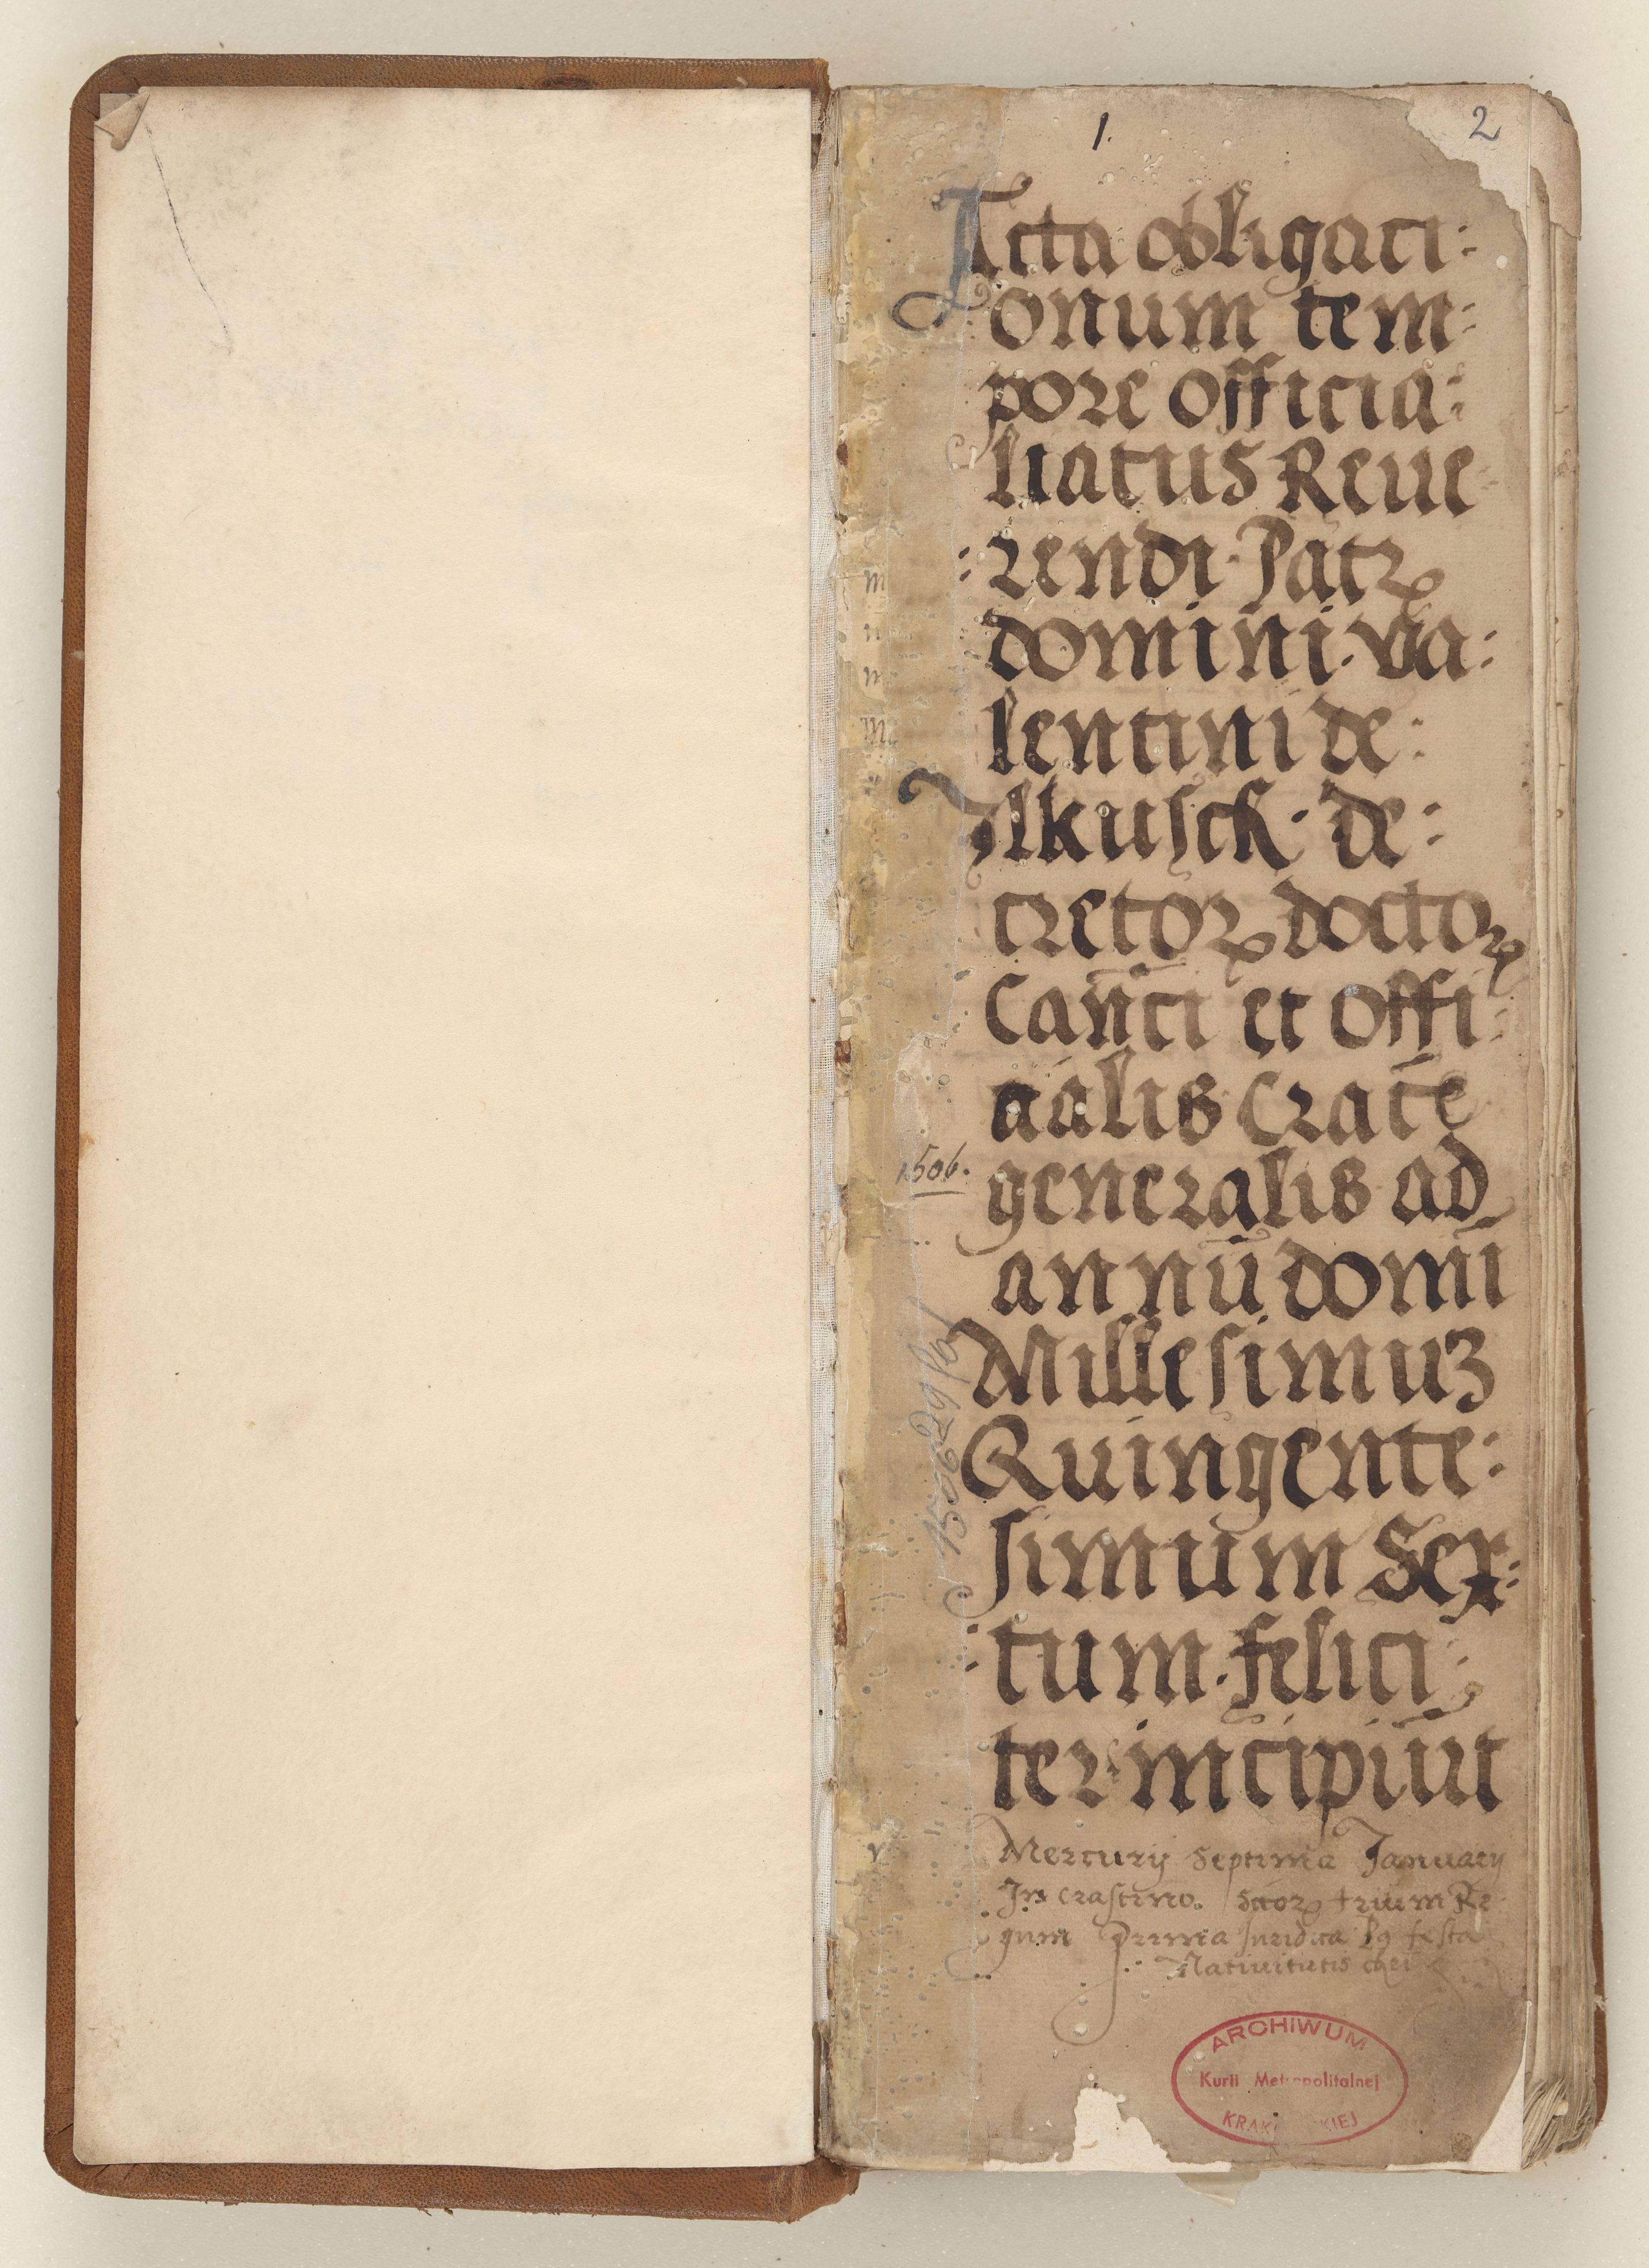 1.
2
Acta obligaci:
onum tem:
pore officia:
liatus Reue
:rendi Patꝝ
domini va:
lentini de:
Ilkusch de:
cretoꝝ doctoꝝ
Canci et Offi:
cialis Cracē
1506.
generalis ad
annū domī
Millesimuʒ
Quingente:
simum Sex:
:tum felici
ter incipiūt
Mercurij septima Januarij
In crastino sctoꝝ trium Re
gum prima Juridica pꝰ festa
Natiuitatis chri
ARCHIWUM
Kurii Metropolitalnej
KRAK KIEJ